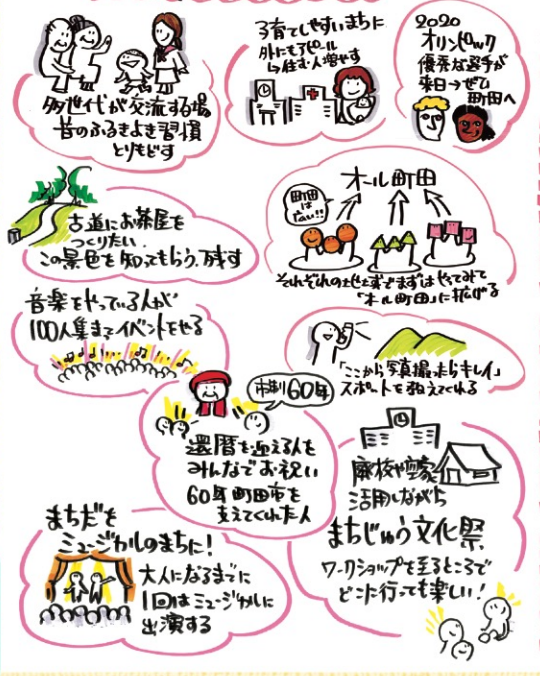 多世代が交流する場
昔のふるきよき習慣
とりもどす
子育てしやすいまちに
外にもアピール
↳住む人増やす
2020
オリンピック
優秀な選手が
来日→ぜひ
町田へ
古道にお茶屋を
つくりたい
この景色を知ってもらう、残す
オール町田
町田
は
広い!!
それぞれの地域でまずはやってみて
「オール町田」に拡げる
音楽をやっている人が
100人集まるイベントをやる
「ここから写真撮ったらキレイ」
スポットを教えてくれる
市制60年
還暦を迎える人を
みんなでお祝い
60年町田市を
支えてくれた人
廃校や空家
活用しながら
まちじゅう文化祭
ワークショップを至るところで
どこに行っても楽しい!
まちだを
ミュージカルのまちに!
大人になるまでに
1回はミュージカルに
出演する